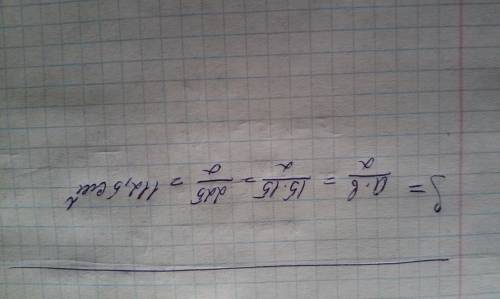 S = a·b/2 = 15·15/2 = 225/2 = 112,5 см²